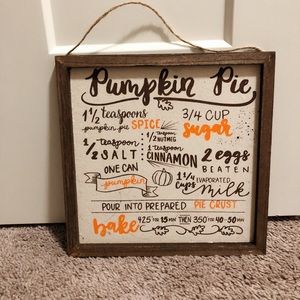 Pumpkin Pie
1 1/2 teaspoons
pumpkin pie SPICE
3/4 CUP
sugar
1/2 teaspoon
SALT
1/2 teaspoon
NUTMEG
1 teaspoon
CINNAMON
2 eggs
BEATEN
ONE CAN
pumpkin
1 1/4 cups EVAPORATED
milk
POUR INTO PREPARED PIE CRUST
bake 425 FOR 15 MIN THEN 350 FOR 40-50 MIN